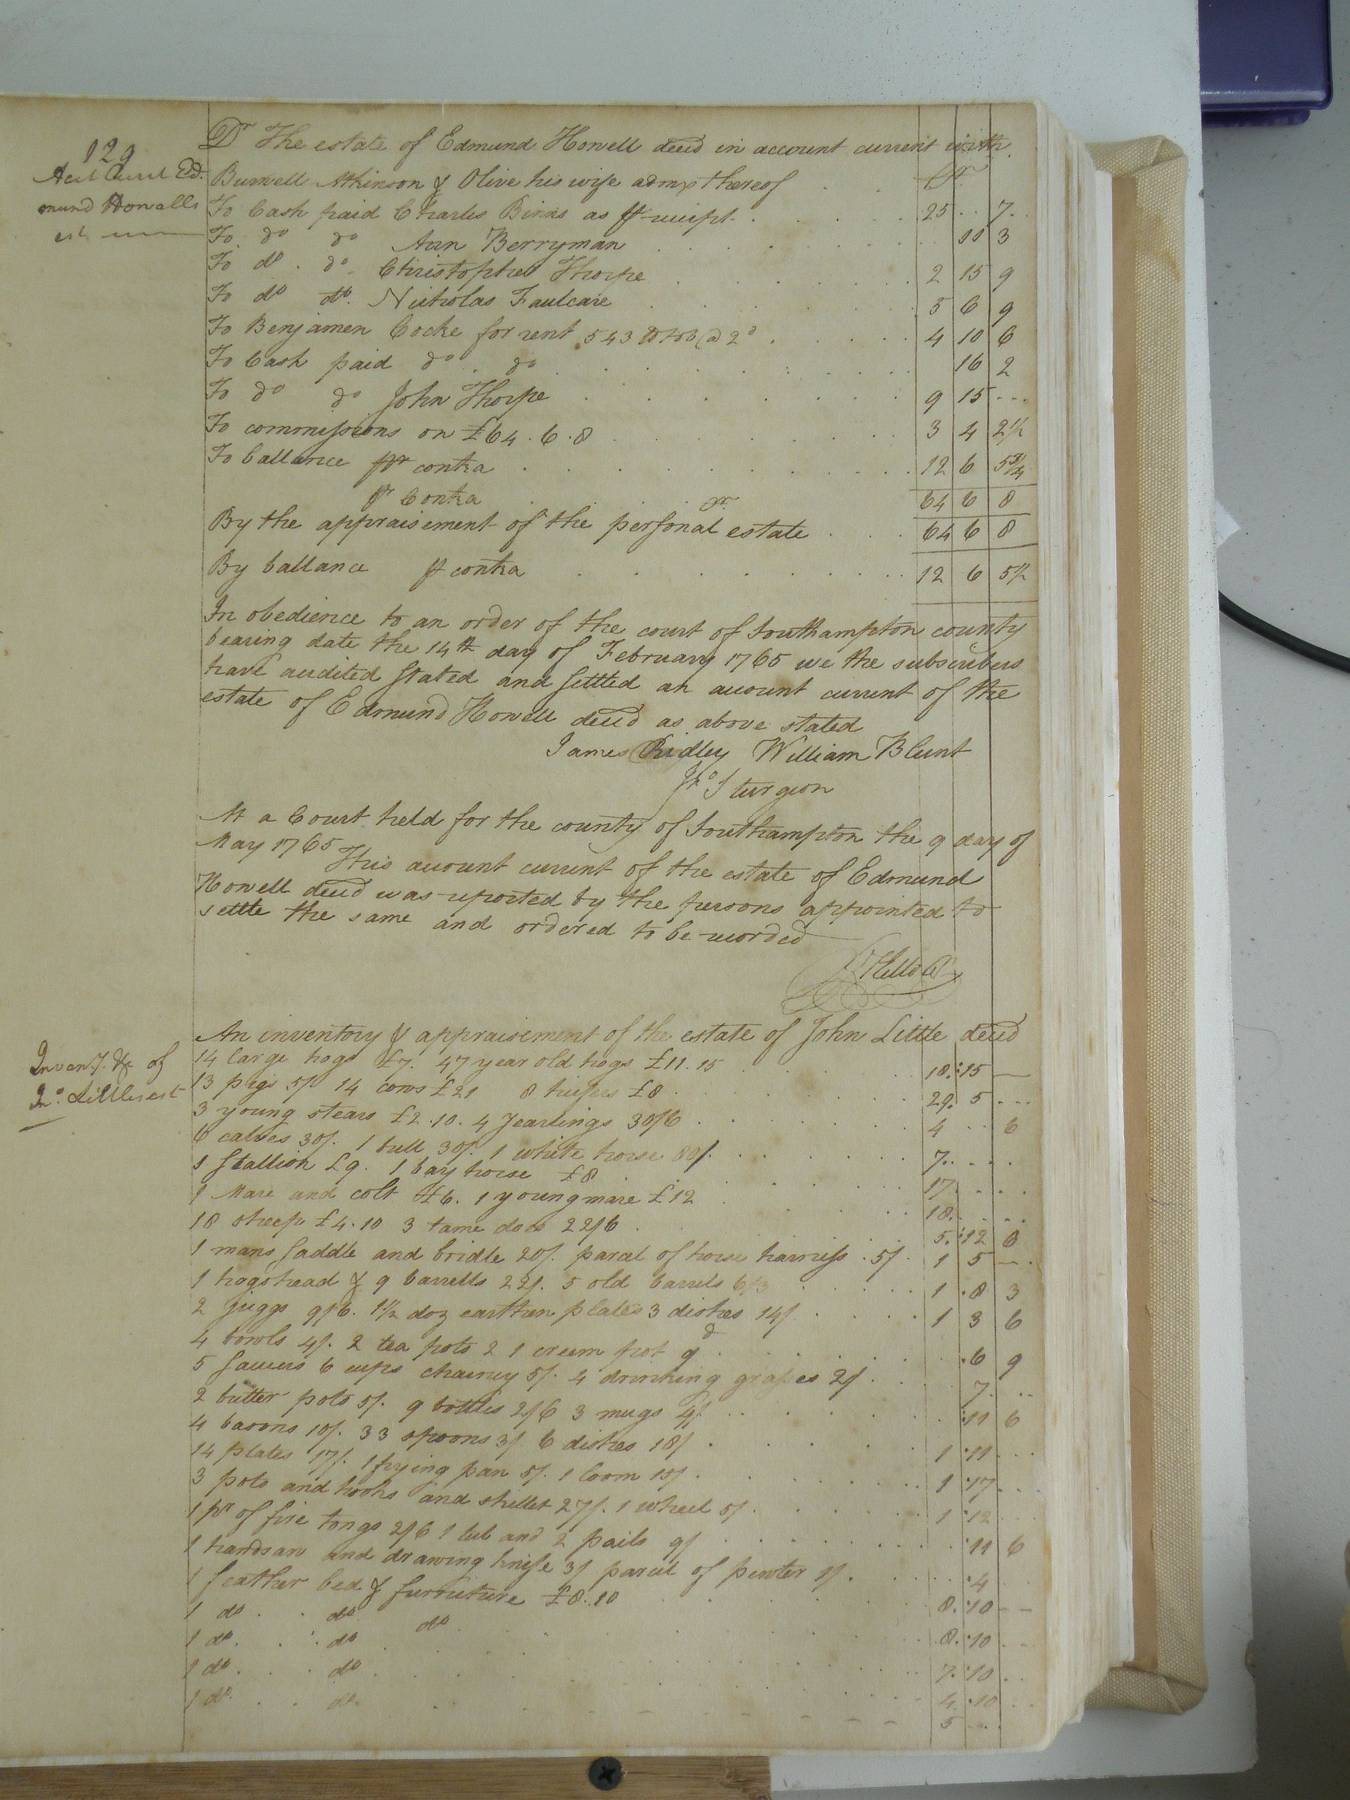 129
Acct Currt Ed-
mund Howells
est
Dr The estate of Edmund Howell decd in account current with
Burwell Atkinson & Olive his wife admx thereof Cr
To Cash paid Charles Binns as pr receipt 25 .. 7
To do do Ann Berryman 11 3
To do do Christopher Thorpe 2 15 9
To do do Nicholas Faulcare 5 6 9
To Benjamen Cocke for rent 543 lb tob @ 2d 4 10 6
To Cash paid do do 16 2
To do do John Thorpe 9 15 --
To commissions on £64.6.8 3 4 2 1/2
To ballance pr contra 12 6 5 3/4
64 6 8
pr Contra Cr
By the appraisement of the personal estate 64 6 8
By ballance pr contra 12 6 5 1/2
In obedience to an order of the court of Southampton county
bearing date the 14th day of February 1765 we the subscribers
have audited stated and settled an account current of the
estate of Edmund Howell decd as above stated
James Ridley William Blunt
Jno Sturgion
At a Court held for the county of Southampton the 9 day of
May 1765
This account current of the estate of Edmund
Howell decd was reported by the persons appointed to
settle the same and ordered to be recorded
R Kello Cr
Invent. &c of
Jno Littles est
An inventory & appraisement of the estate of John Little decd
14 large hogs £7. 47 year old hogs £11.15 18:15 —
13 pigs 5/. 14 cows £21 8 heifers £8 29. 5 --
3 young stears £2.10. 4 yearlings 30/6 4 .. 6
6 calves 30/. 1 bull 30/. 1 white horse 80/. 7 .. ..
1 Stallion £9. 1 bay horse £8 17 .. ..
1 Mare and colt £6. 1 young mare £12 18 .. ..
18 sheep £4.10 3 tame does 22/6 5:12 6
1 mans saddle and bridle 20/. parcel of horse harness 5/ 1 5 —
1 hogshead & 9 barrells 22/. 5 old barrels 6/3 1 8 3
2 Juggs 9/6. 1 1/2 doz earthen plates 3 dishes 14/ 1 3 6
4 bowls 4/. 2 tea pots 2 1 creem pot 9d 6 9
5 sawers 6 cups chainey 5/. 4 drinking glasses 2/ 7 ..
2 butter pots 5/. 9 bottles 2/6 3 mugs 4/ 11 6
4 basons 10/. 33 spoons 3/ 6 dishes 18/ 1 11 ..
14 plates 17/. 1 frying pan 5/. 1 loom 15/ 1 17 ..
3 pots and hooks and skillet 27/. 1 wheel 5/ 1 12 ..
1 pr of fire tongs 2/6 1 tub and 2 pails 9/ 11 6
1 handsaw and drawing knife 3/ parcel of pewter 1/ 4 ..
1 feather bed & furniture £8.10 8:10 --
1 do do do 8:10 ..
1 do do 7:10 ..
1 do do 4:10 ..
1 do do 5 .. ..